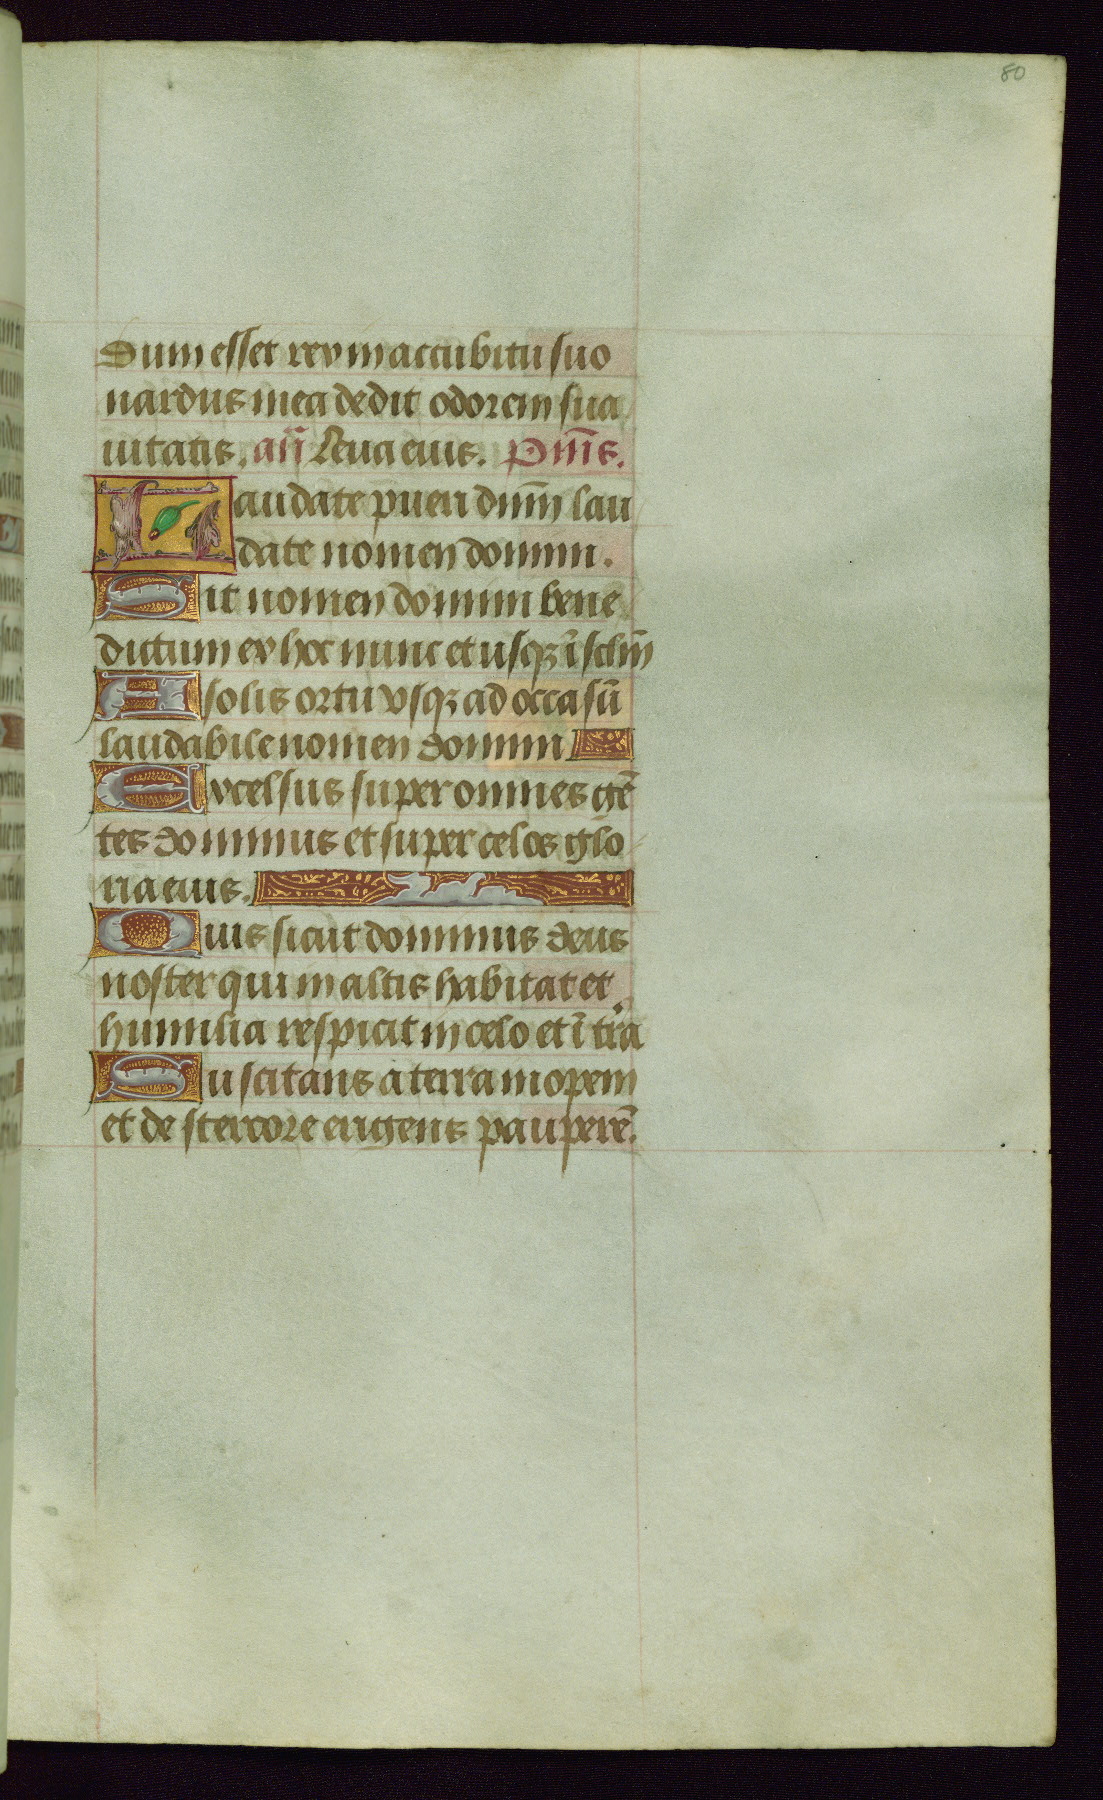 80
Dum esset rex in accubitu suo
nardus mea dedit odorem sua
uitatis. añ Leua eius. Psm̄s.
Laudate pueri dñm lau
date nomen domini.
Sit nomen domini bene
dictum ex hoc nunc et usqꝫ ī sclm̄
A solis ortu vsqꝫ ad occasū
laudabile nomen domini
Excelsus super omnes gē
tes dominus et super celos glo
ria eius.
Quis sicut dominus deus
noster qui in altis habitat et
humilia respicit in celo et ī tr̄a
Suscitans a terra inopem
et de stercore erigens pauperē.